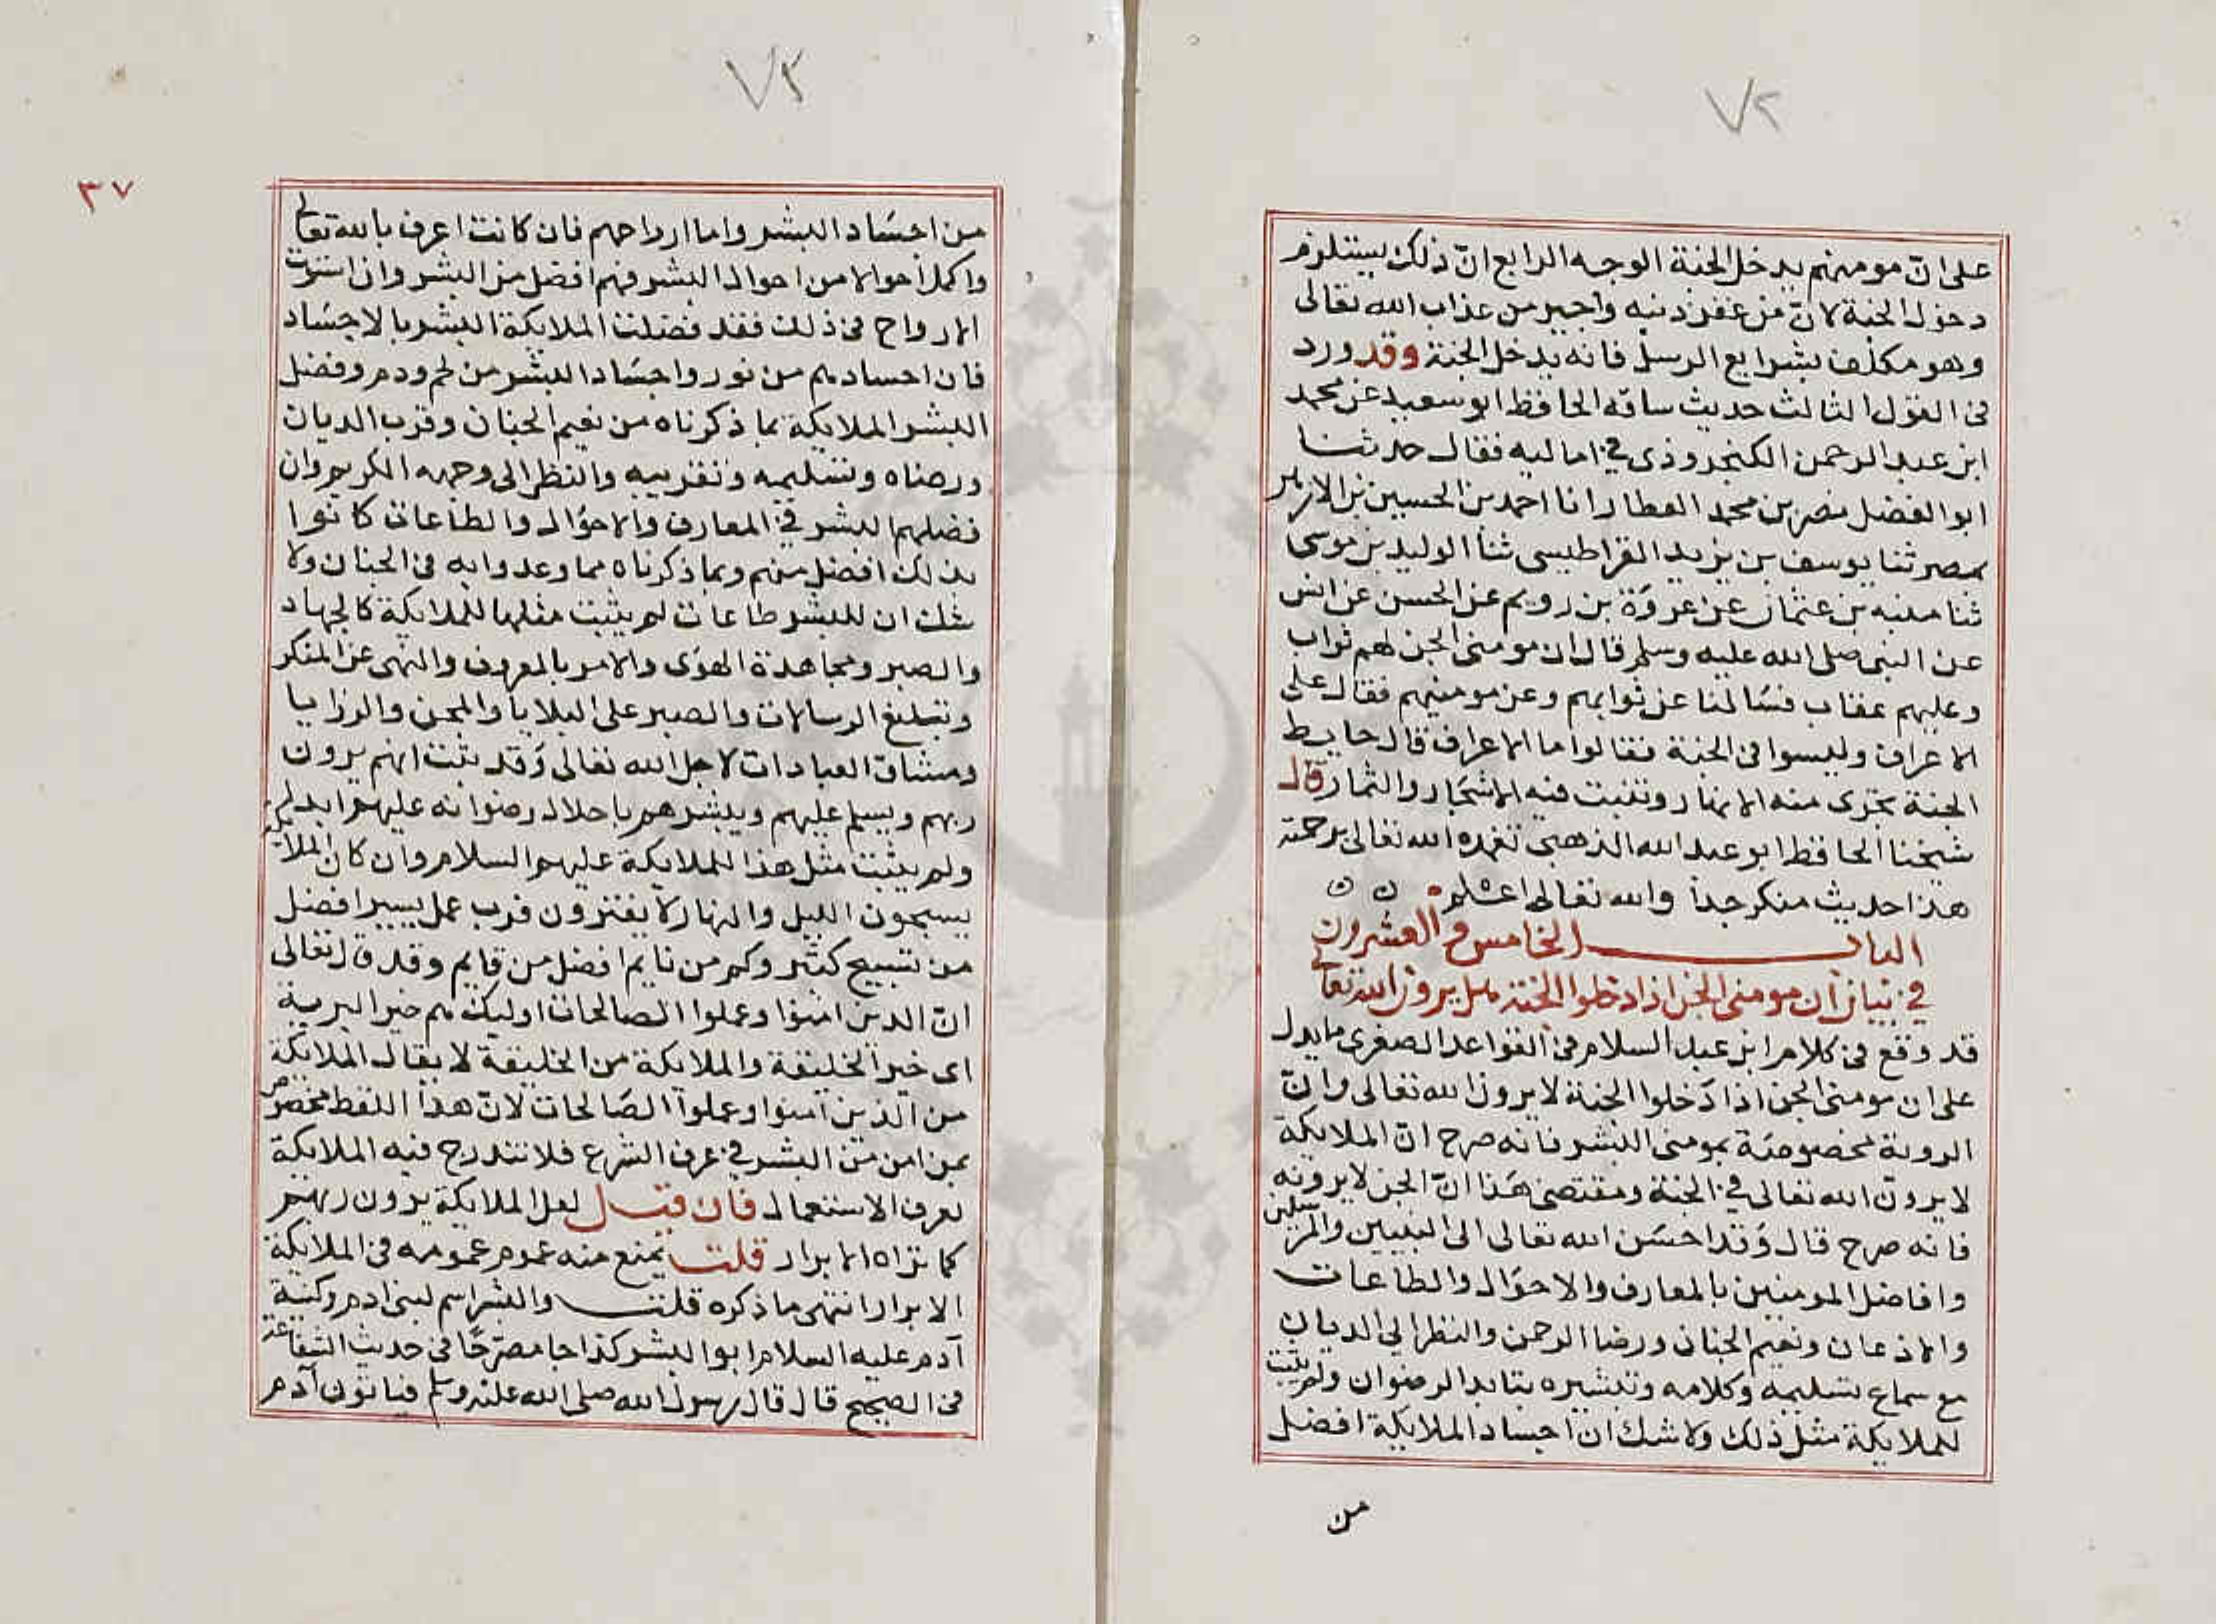 ٧٢
على انّ مومنهم يدخل الجنة الوجه الرابع انّ ذلك يستلزم
دخول الجنة لانّ من غفر ذنبه واجير من عذاب الله تعالى
وهو مكلف بشرايع الرسل فانه يدخل الجنة وقد ورد
فى القول الثالث حديث ساقه الحافظ ابو سعيد عن محمد
ابن عبد الرحمن الكنجروذى في اماليه فقال حدثنا
ابو الفضل نصر بن محمد العطار انا احمد بن الحسين بن الازهر
بمصر ثنا يوسف بن يزيد القراطيسى ثنا الوليد بن موسى
ثنا منبه بن عثمان عن عروة بن رويم عن الحسن عن انس
عن النبى صلى الله عليه وسلم قال ان مومنى الجن لهم ثواب
وعليهم عقاب فسالنا عن ثوابهم وعن مومنيهم فقال على
الاعراف وليسوا فى الجنة فقالوا ما الاعراف قال حايط
الجنة تجرى منه الانهار وتنبت فيه الاشجار والثمار قال
شيخنا الحافظ ابو عبد الله الذهبى تغمده الله تعالى برحمته
هذا حديث منكر جدا والله تعالى اعلم
الباب الخامس والعشرون
في بيان ان مومنى الجن اذا دخلوا الجنة هل يرون الله تعالى
قد وقع فى كلام ابن عبد السلام فى القواعد الصغرى ما يدل
على ان مومنى الجن اذا دخلوا الجنة لا يرون الله تعالى وانّ
الروية مخصوصة بمومنى البشر فانه صرح انّ الملايكة
لا يرون الله تعالى في الجنة ومقتضى هذا انّ الجن لا يرونه
فانه صرح قال وقد احسن الله تعالى الى النبيين والمرسلين
وافاضل المومنين بالمعارف والاحوال والطاعات
والاذعان ونعيم الجنان ورضا الرحمن والنظر الى الديان
مع سماع تسليمه وكلامه وتبشيره بتابد الرضوان ولم يثبت
للملايكة مثل ذلك ولا شك ان اجساد الملايكة افضل
من
٧٣
٣٧
من اجساد البشر واما ارواحهم فان كانت اعرف بالله تعالى
واكمل احوالا من احوال البشر فهم افضل من البشر وان استوت
الارواح فى ذلك فقد فضلت الملايكة البشر بالاجساد
فان اجسادهم من نور واجساد البشر من لحم ودم وفضل
البشر الملايكة بما ذكرناه من نعيم الجنان وقرب الديان
ورضاه وتسليمه وتقريبه والنظر الى وجهه الكريم وان
فضلهم البشر في المعارف والاحوال والطاعات كانوا
بذلك افضل منهم وبما ذكرناه مما وعدوا به فى الجنان ولا
شك ان للبشر طاعات لم يثبت مثلها للملايكة كالجهاد
والصبر ومجاهدة الهوى والامر بالمعروف والنهى عن المنكر
وتبليغ الرسالات والصبر على البلايا والمحن والرزايا
ومشاق العبادات لاجل الله تعالى وقد ثبت انهم يرون
ربهم ويسلم عليهم ويبشرهم باحلال رضوانه عليهم ابدا
ولم يثبت مثل هذا للملايكة عليهم السلام وان كان الملايكة
يسبحون الليل والنهار لا يفترون فرب عمل يسير افضل
من تسبيح كثير وكم من نايم افضل من قايم وقد قال تعالى
انّ الذين امنوا وعملوا الصالحات اوليك هم خير البرية
اى خير الخليقة والملايكة من الخليقة لا يقال الملايكة
من الذين آمنوا وعملوا الصالحات لانّ هذا اللفظ مخصوص
بمن امن من البشر في عرف الشرع فلا تندرج فيه الملايكة
لعرف الاستعمال فان قيل لعل الملايكة يرون ربهم
كما تراه الابرار قلت يمنع منه عموم عمومه فى الملايكة
الابرار انتهى ما ذكره قلت والبشر اسم لبنى ادم وكنية
آدم عليه السلام ابو البشر كذا جا مصرّحا فى حديث الشفاعة
فى الصحيح قال قال رسول الله صلى الله عليه وسلم فياتون آدم